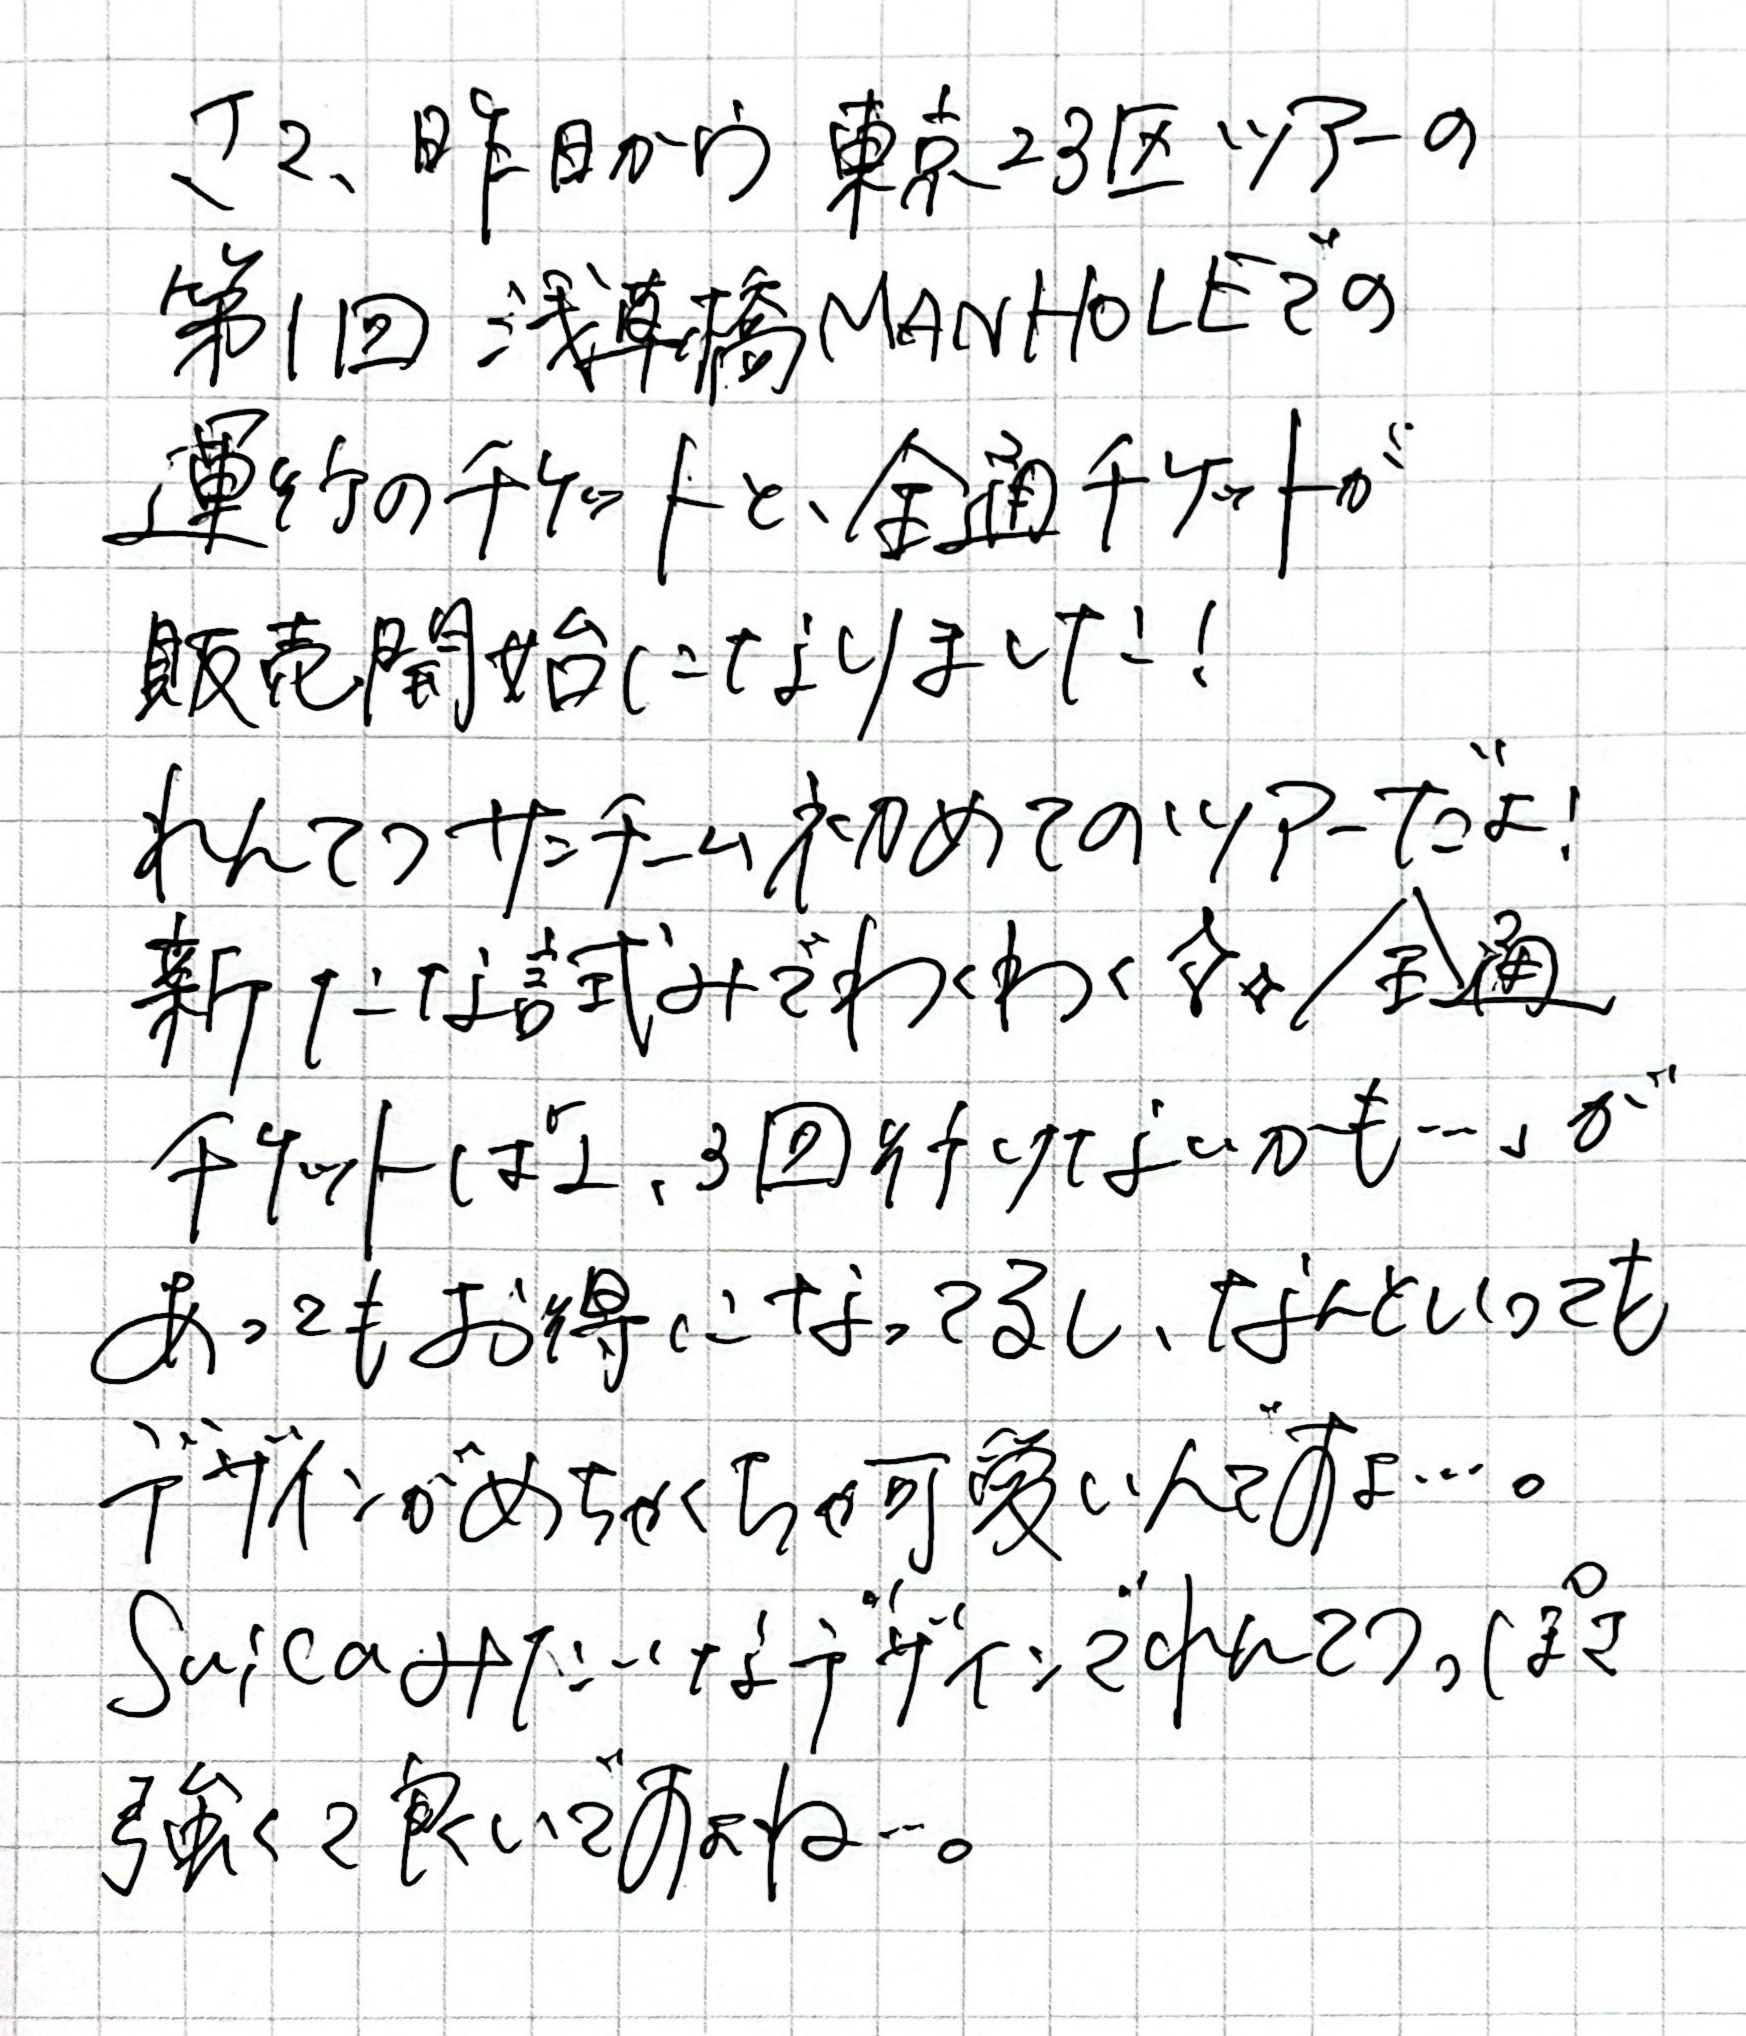 さて、昨日から東京23区ツアーの
第1回 浅草橋MANHOLEでの
運行のチケットと、全通チケットが
販売開始になりました!
れんてつサンチーム初めてのツアーだよ!
新たな試みでわくわく✧✧全通
チケットは2、3回行けないかも…が
あってもお得になってるし、なんといっても
デザインがめちゃくちゃ可愛いんですよ…。
Suicaみたいなデザインでれんてつっぽさ
強くて良いですよね…。